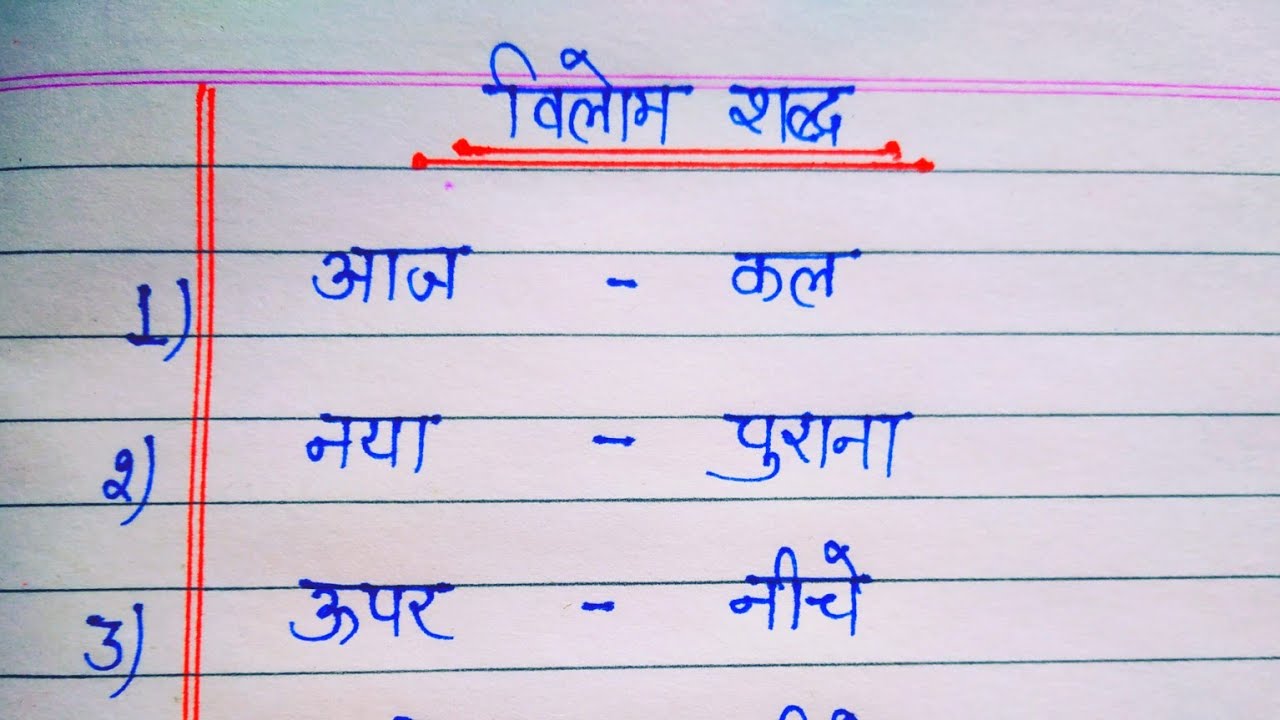 विलोम शब्द
1) आज - कल
२) नया - पुराना
3) ऊपर - नीचे